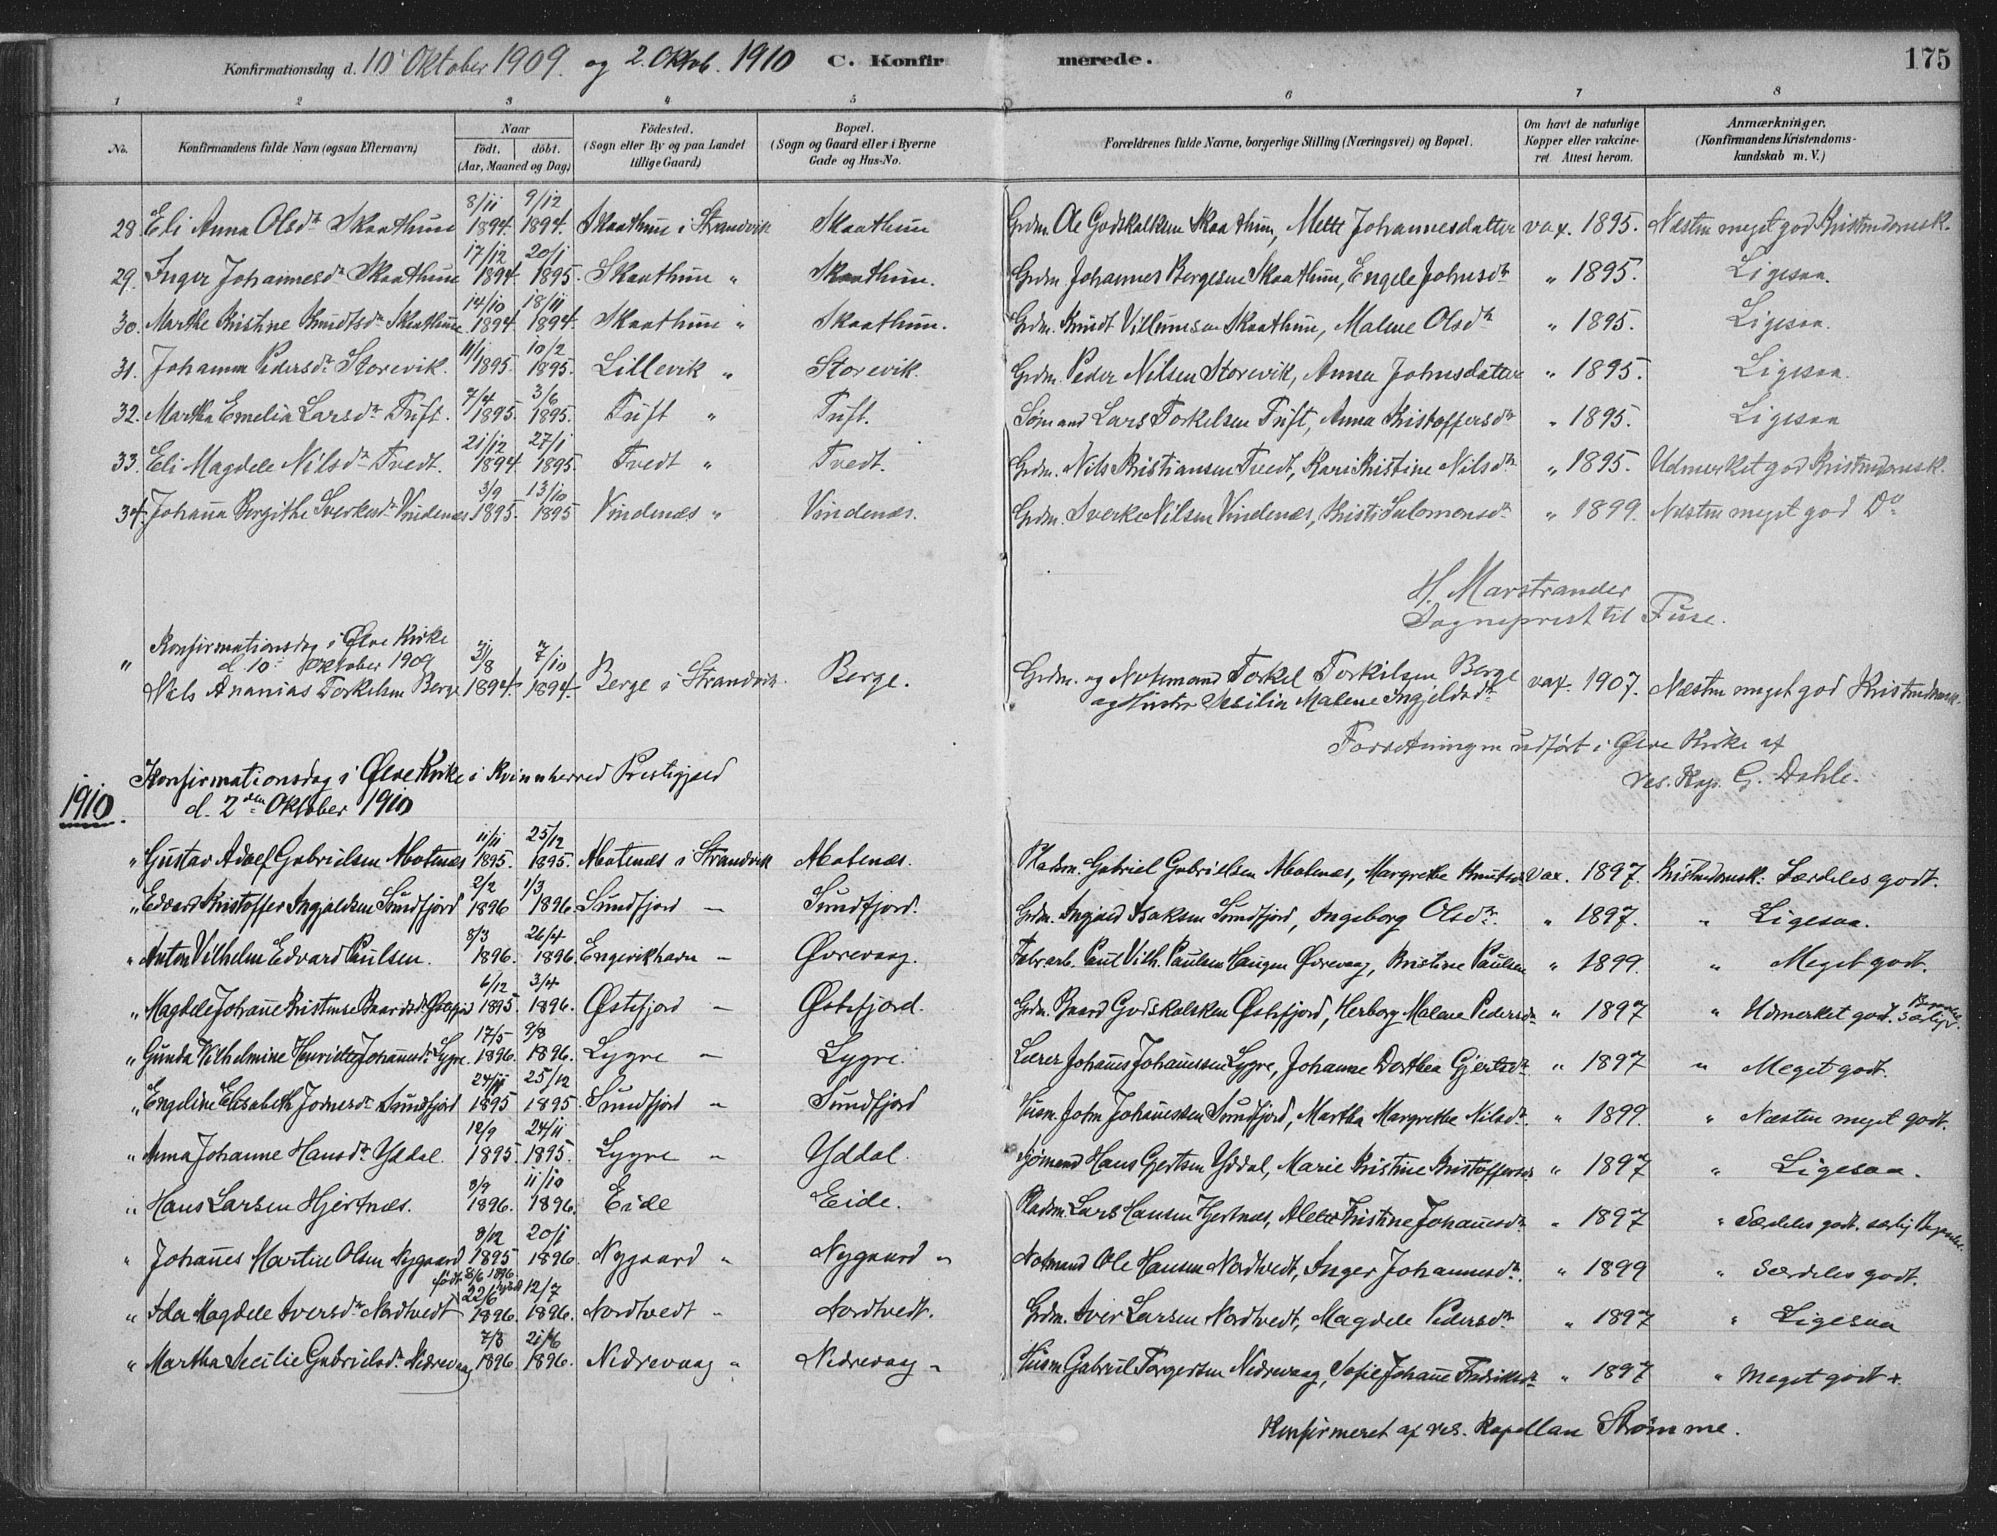 Konfirmationsdag d. 10' Oktober 1909. og 2. Oktob. 1910 C. Konfirmerede. 175
1 2 3 4 5 6 7 8
No. Konfirmandens fulde Navn (ogsaa Efternavn) Naar födt. döbt. (Aar, Maaned og Dag) Födested. (Sogn eller By og paa Landet tillige Gaard) Bopæl. (Sogn og Gaard eller i Byerne Gade og Hus-No. Forældrenes fulde Navne, borgerlige Stilling (Næringsvei) og Bopæl. Om havt de naturlige Kopper eller vakcineret. Attest herom. Anmærkninger. (Konfirmandens Kristendomskundskab m. V.)
28 Eli Anna Olsdr. Skaathun 8/11 1894. 9/12 1894. Skaathun i Strandvik Skaathun Grdm. Ole Godskalksen Skaathun, Mette Johannesdatter vax. 1895. Næsten meget god Kristendomsk.
29. Inger Johannesdr. Skaathun 17/12 1894. 20/1 1895. Skaathun " Skaathun. Grdm. Johannes Børgesen Skaathun, Engele Johnsdr " 1895. Ligesaa.
30. Marthe Kristine Knudtsdr. Skaathun 14/10 1894. 18/11 1894. Skaathun " Skaathun. Grdm. Knudt Villumsen Skaathun, Malene Olsdr " 1895. Ligesaa.
31. Johanna Pedersdr. Storevik. 11/1 1895. 10/2 1895. Lillevik " Storevik. Grdm. Peder Nilsen Storevik, Anna Johnsdatter " 1895. Ligesaa.
32. Martha Emelia Larsdr. Tuft. 7/4 1895. 3/6 1895. Tuft " Tuft. Sømand Lars Torkelsen Tuft, Anna Kristoffersdr " 1895. Ligesaa
33. Eli Magdele Nilsdr. Tvedt. 21/12 1894. 27/1 1895. Tvedt " Tvedt. Grdm. Nils Kristiansen Tvedt, Kari Kristine Nilsdr " 1895. Udmerket god Kristendomsk.
34. Johanna Bergithe Sverkesdr. Vindenæs 3/9 1895. 13/10 1895 Vindenæs " Vindenæs. Grdm. Sverke Nilsen Vindenæs, Kristi Salomonsdr. " 1899. Næsten meget god Do
H. Marstrander
Sogneprest til Fuse.
" Konfirmationsdag i Ølve Kirke
d. 10de Oktober 1909
Nils Ananias Torkelsen Berge /8 1894. 7/10 1894. Berge i Strandvik. Berge. Grdm. og Notemand Torkel Torkilsen Berge vax. 1907. Næsten meget god Kristendomsk.
og Hustru Sesilia Malene Ingjeldsdr.
Forretningen udført i Ølve Kirke af
res. Kap. G. Dahle.
Konfirmationsdag i Ølve Kirke i Kvinnherred Prestigjeld
1910. d. 2den Oktober 1910
" Gustav Adolf Gabrielsen Abotnæs 11/11 1895. 25/12 1895. Abotnæs i Strandvik Abotnæs. Pladsm. Gabriel Gabrielsen Abotnæs, Margrethe Knutsdr. vax. 1897. Kristendomsk: Særdeles godt.
" Edvard Kristoffer Ingjaldsen Sundfjord 2/2 1896 1/3 1896. Sundfjord — Sundfjord. Grdm. Ingjald Isaksen Sundfjord, Ingeborg Olsdr. " 1897. " Ligesaa.
" Anton Vilhelm Edvard Paulsen. 8/3 1896. 26/4 1896. Engevikhavn — Øvrevaag. Fabr.arb. Paul Vilh. Paulsen Haugen Øvrevaag, Kristine Paulsen " 1899. " Meget godt.
" Magdele Johanne Kristense Baardsdr. Østefjord 6/12 1895 3/4 1896. Østefjord — Østefjord. Grdm. Baard Godskalksen Østefjord, Herborg Malene Pedersdr " 1897 " Udmerket god.
" Gunda Vilhelmine Henriette Johannesdr. Lygre. 17/5 1896. 9/8 1896. Lygre — Lygre. Lærer Johannes Johannessen Lygre, Johanne Dorthea Gjertsdr. " 1897 " Meget godt.
" Engeline Elisabeth Johnesdr. Sundfjord 24/11 1895 25/12 1895. Sundfjord — Sundfjord Husm. John Johannessen Sundfjord, Martha Margrethe Nilsdr. " 1899. " Næsten meget godt.
" Anna Johanne Hansdr. Yddal. 12/9 1895. 24/11 1895. Lygre " Yddal. Sjømand Hans Gjertsen Yddal, Marie Kristine Kristoffersdr. " 1897 " Ligesaa.
" Hans Larsen Hjertnæs. 8/9 1896. 11/10 1896. Eide Eide. Pladsm. Lars Hansen Hjertnæs, Alette Kristine Johannesdr " 1897 " Særdeles godt.
" Johannes Martin Olsen Nygaard 8/12 1895 20/1 1896. Nygaard " Nygaard " Notmand Ole Hansen Nordtvedt, Inger Johannesdr. " 1899 " Særdeles godt.
født 8/6 1896
" Ida Magdele Iversdr. Nordtvedt 22/6 1896. 12/7 1896. Nordtvedt " Nordtvedt. Grdm. Iver Larsen Nordtvedt, Magdele Pedersdr. " 1897 " Ligesaa
" Martha Secilie Gabrielsdr. Nedrevaag 7/3 1896. 21/6 1896. Nedrevaag " Nedrevaag " Husm. Gabriel Torgersen Nedrevaag, Sofie Johanne Fredriksdr. " 1897 " Meget godt +.
Konfirmeret af res. Kapellan Strømme.